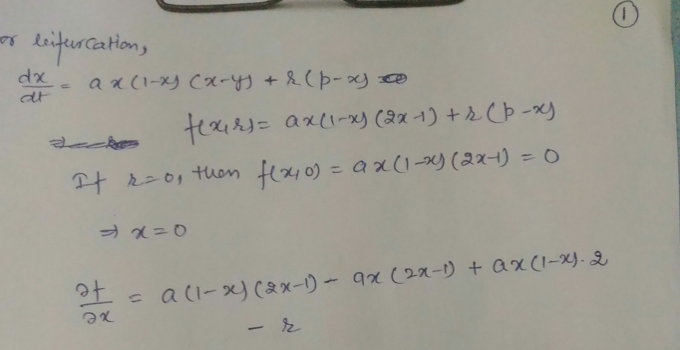 1
or bifurcation,
dx/dt = ax(1-x)(x-y) + r(p-x)
f(x,r) = ax(1-x)(2x-1) + r(p-x)
If r=0, then f(x,0) = ax(1-x)(2x-1) = 0
⇒ x=0
∂f/∂x = a(1-x)(2x-1) - ax(2x-1) + ax(1-x).2
- r